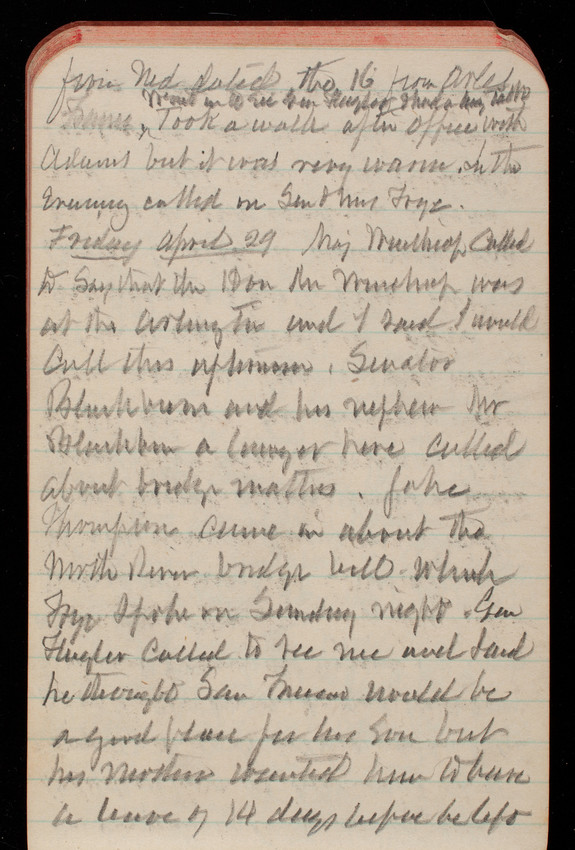 from Ned dated the 16 from
Went in to see Gen Flagler & had a long talk
Took a walk after office with
Adams but it was very warm. In the
evening called on Gen & Mrs Frye.
Friday April 29 Maj Winthrop called
to say that the Hon Mr Winthrop was
at the Arlington and I said I would
call this afternoon. Senator
Blackburn and his nephew Mr
Blackburn a lawyer here called
about bridge matters. Jake
Thompson came in about the
North River bridge bill which
Frye spoke on Sunday night. Gen
Flagler called to see me and said
he thought San Francisco would be
a good place for his son but
his mother wanted him to have
a leave of 14 days before he left